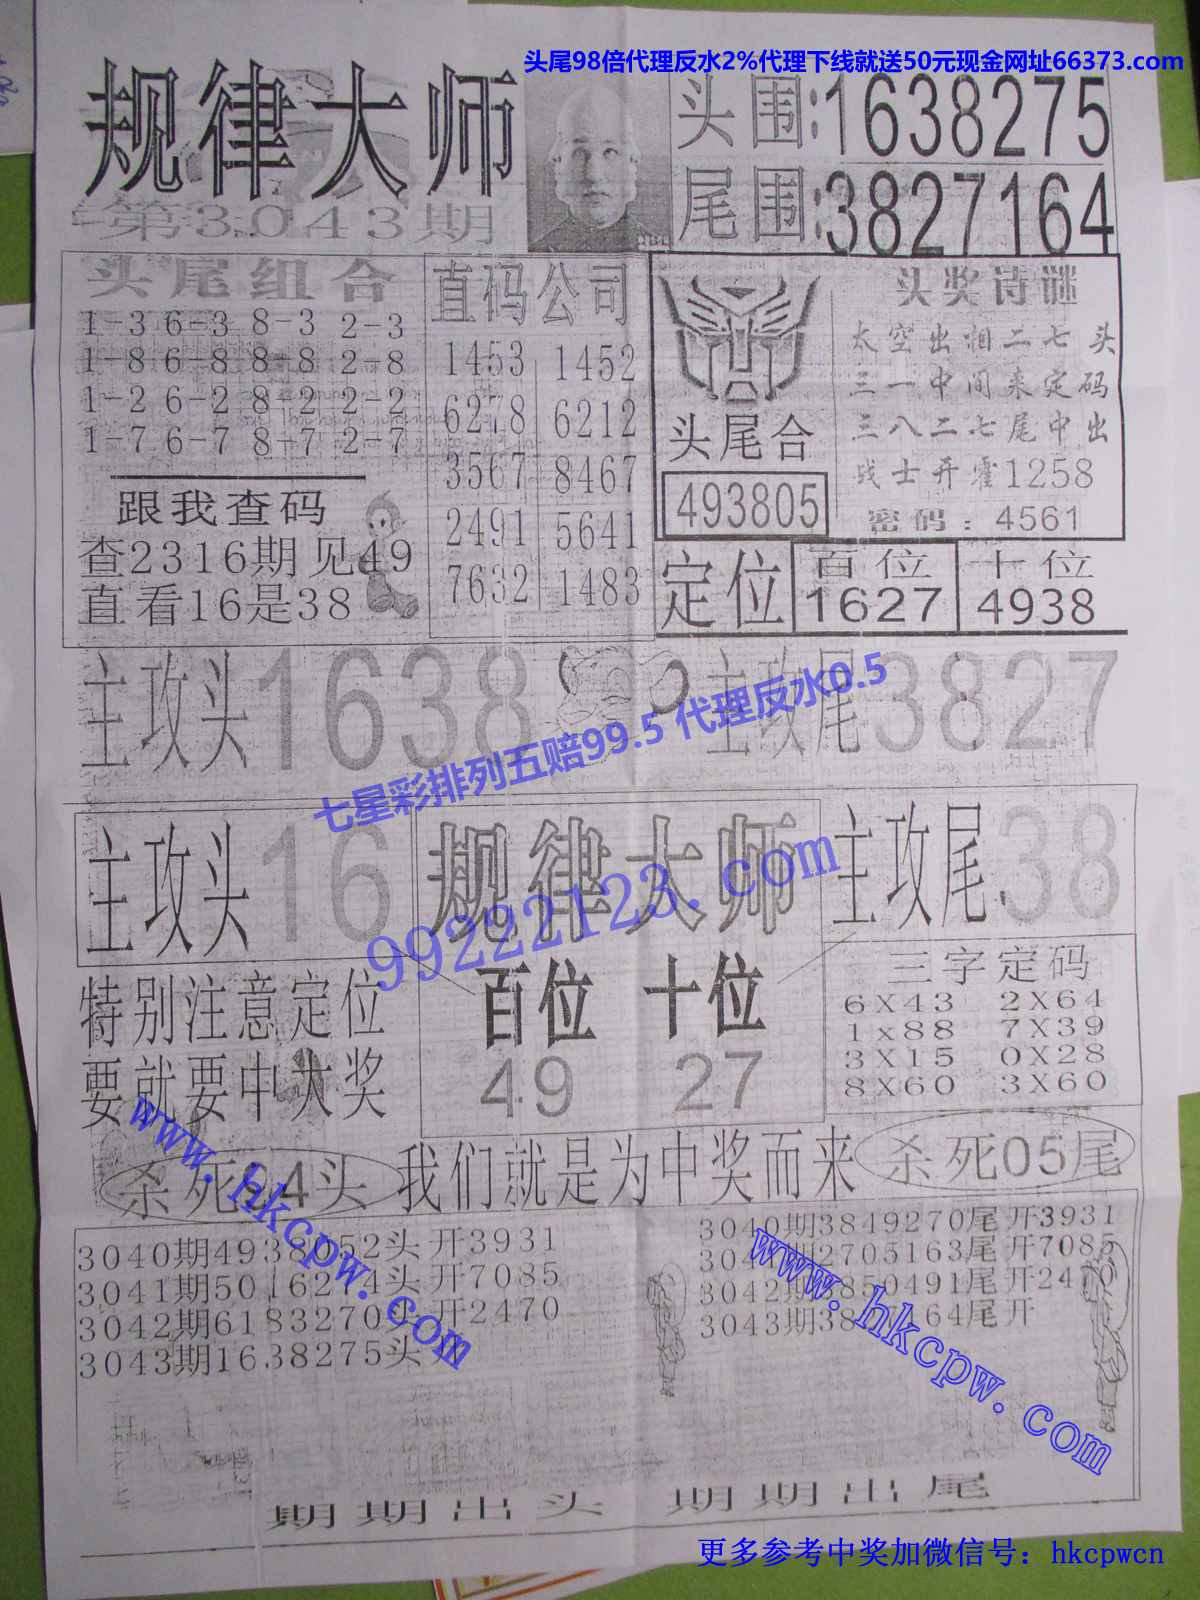 头尾98倍代理反水2%代理下线就送50元现金网址66373.com
规律大师
第3043期
头围:1638275
尾围:3827164
头尾组合
1-3 6-3 8-3 2-3
1-8 6-8 8-8 2-8
1-2 6-2 8-2 2-2
1-7 6-7 8-7 2-7
跟我查码
查2316期见49
直看16是38
直码公司
1453 1452
6278 6212
3567 8467
2491 5641
7632 1483
头尾合
493805
头奖诗谜
太空出相二七头
三一中间来定码
三八二七尾中出
战士开霍1258
密码：4561
定位
百位
1627
十位
4938
主攻头1638
主攻尾3827
七星彩排列五赔99.5 代理反水0.5
99222123.com
主攻头16
规律大师
主攻尾38
特别注意定位
要就要中大奖
百位 十位
49 27
三字定码
6X43 2X64
1X88 7X39
3X15 0X28
8X60 3X60
杀死 4头
我们就是为中奖而来
杀死05尾
3040期4938052头开3931
3041期50162 4头开7085
3042期6183270头开2470
3043期1638275头
3040期3849270尾开3931
2705163尾开7085
3042期3850491尾开24
3043期38 64尾开
www.hkcpw.com
www.hkcpw.com
期期出头 期期出尾
更多参考中奖加微信号：hkcpwcn